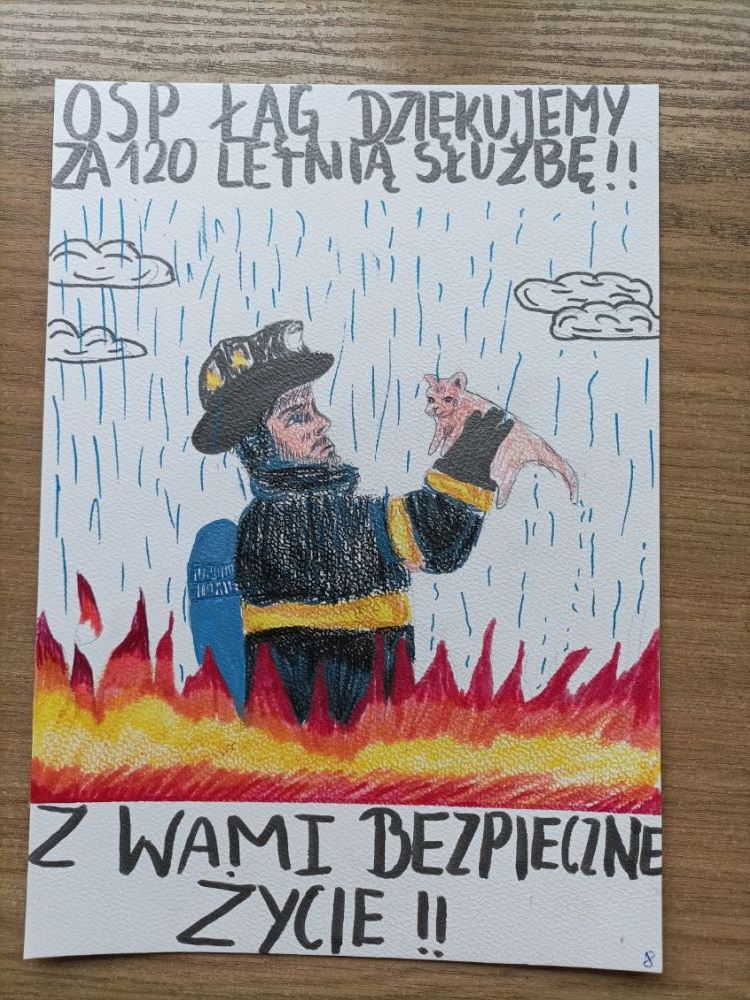 OSP ŁĄG DZIĘKUJEMY
ZA 120 LETNIĄ SŁUŻBĘ!!
Z WAMI BEZPIECZNE
ŻYCIE !!
8